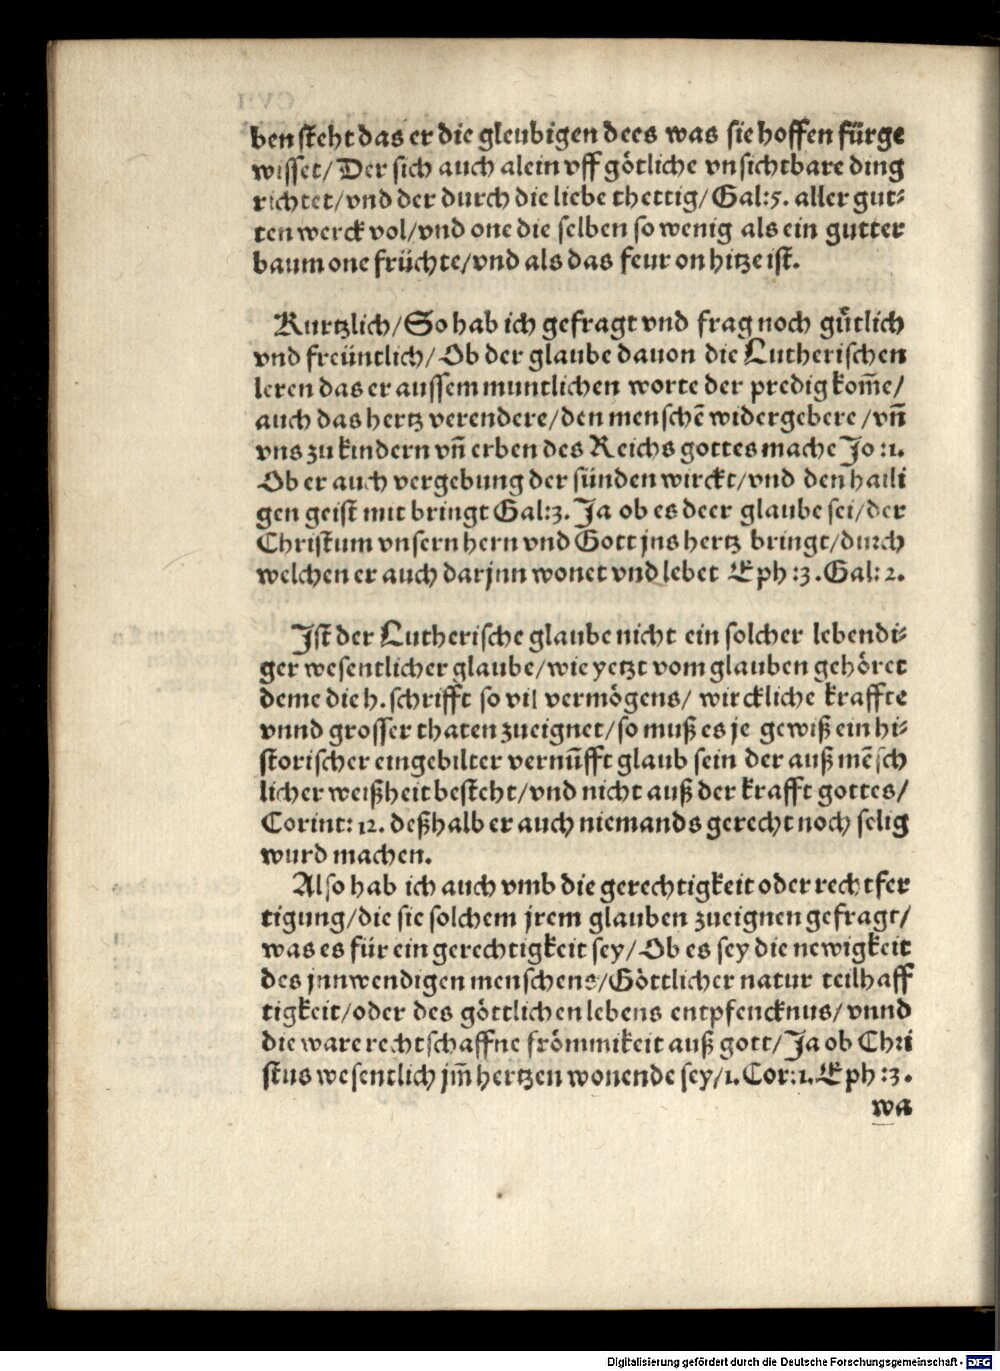 ben steht das er die gleubigen dees was sie hoffen fürge
wisset/ Der sich auch alein vff götliche vnsichtbare ding
richtet/vnd der durch die liebe thettig/ Gal:5. aller gut⸗
ten werck vol/vnd one die selben so wenig als ein gutter
baum one früchte/vnd als das feur on hitze ist.
Kurtzlich/So hab ich gefragt vnd frag noch gütlich
vnd freüntlich/ Ob der glaube dauon die Lutherischen
leren das er aussem muntlichen worte der predig kom̃e/
auch das hertz verendere/den menschẽ widergebere/vñ
vns zu kindern vñ erben des Reichs gottes mache Jo:1.
Ob er auch vergebung der sünden wirckt/vnd den haili
gen geist mit bringt Gal:3. Ja ob es deer glaube sei/der
Christum vnsern hern vnd Gott jns hertz bringt/durch
welchen er auch darjnn wonet vnd lebet Eph:3.Gal:2.
Jst der Lutherische glaube nicht ein solcher lebendi⸗
ger wesentlicher glaube/wie yetzt vom glauben gehöret
deme die h. schrifft so vil vermögens/ wirckliche kraffte
vnnd grosser thaten zueignet/so muß es je gewiß ein hi⸗
storischer eingebilter vernũfft glaub sein der auß mẽsch
licher weißheit besteht/vnd nicht auß der krafft gottes/
Corint: 12. deßhalb er auch niemands gerecht noch selig
wurd machen.
Also hab ich auch vmb die gerechtigkeit oder rechtfer
tigung/die sie solchem jrem glauben zueignen gefragt/
was es für ein gerechtigkeit sey/ Ob es sey die newigkeit
des jnnwendigen menschens/Göttlicher natur teilhaff
tigkeit/oder des göttlichen lebens entpfencknus/vnnd
die ware rechtschaffne frömmikeit auß gott/ Ja ob Chri
stus wesentlich jm̃ hertzen wonende sey/1. Cor:1. Eph:3.
wa
Digitalisierung gefördert durch die Deutsche Forschungsgemeinschaft - DFG